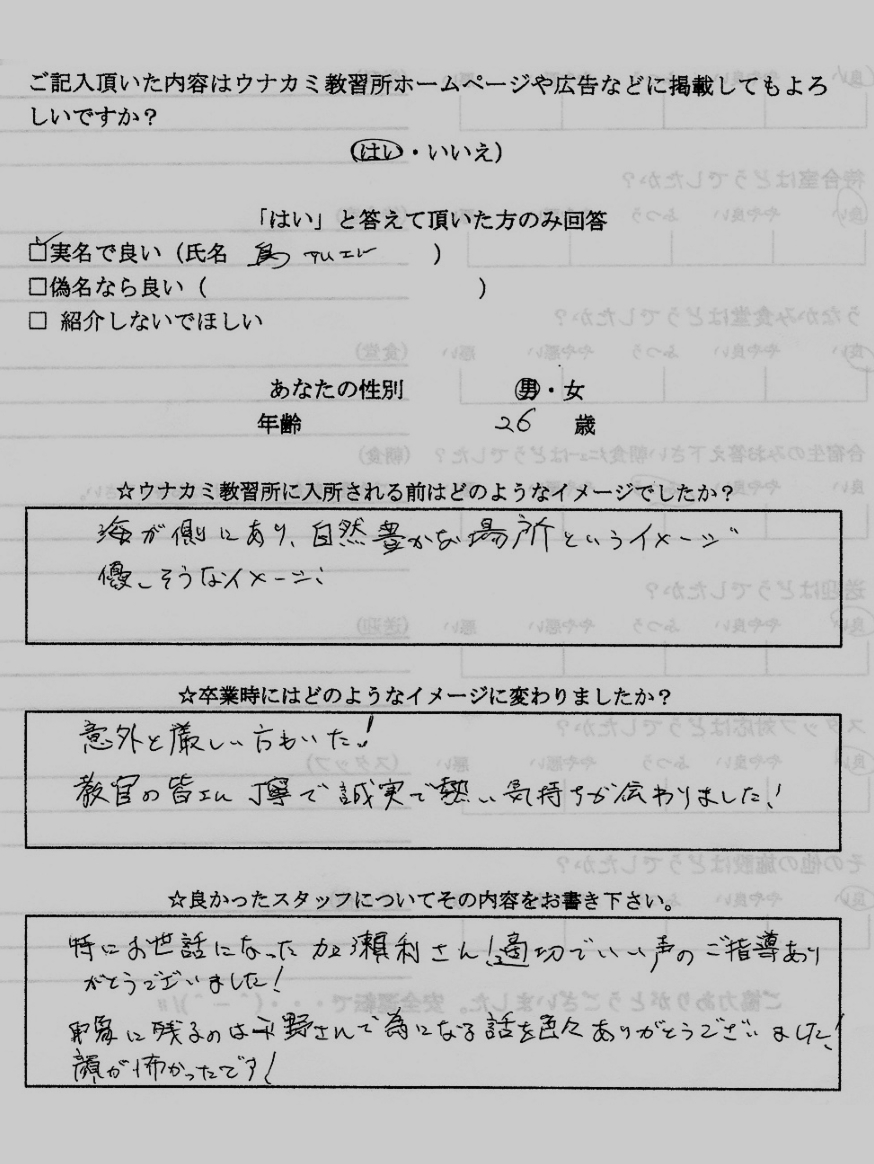 ご記入頂いた内容はウナカミ教習所ホームページや広告などに掲載してもよろ
しいですか？
(はい・いいえ)
「はい」と答えて頂いた方のみ回答
☑実名で良い（氏名 ）
□偽名なら良い（ ）
□ 紹介しないでほしい
あなたの性別 男・女
年齢 26 歳
☆ウナカミ教習所に入所される前はどのようなイメージでしたか？
海が側にあり、自然豊かな場所というイメージ
優しそうなイメージ!
☆卒業時にはどのようなイメージに変わりましたか？
意外と厳しい方もいた!
教官の皆さん丁寧で誠実で熱い気持ちが伝わりました!
☆良かったスタッフについてその内容をお書き下さい。
特にお世話になった加瀬利さん!適切でいい声のご指導あり
がとうございました!
印象に残るのは野さんで為になる話を色々ありがとうございました!
顔が怖かったです!